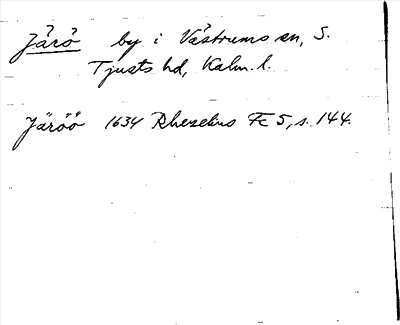 Järö by i Västrums sn, S.
Tjusts hd, Kalm. l.
Järöö 1634 Rhezelius Fc 5, s. 144.